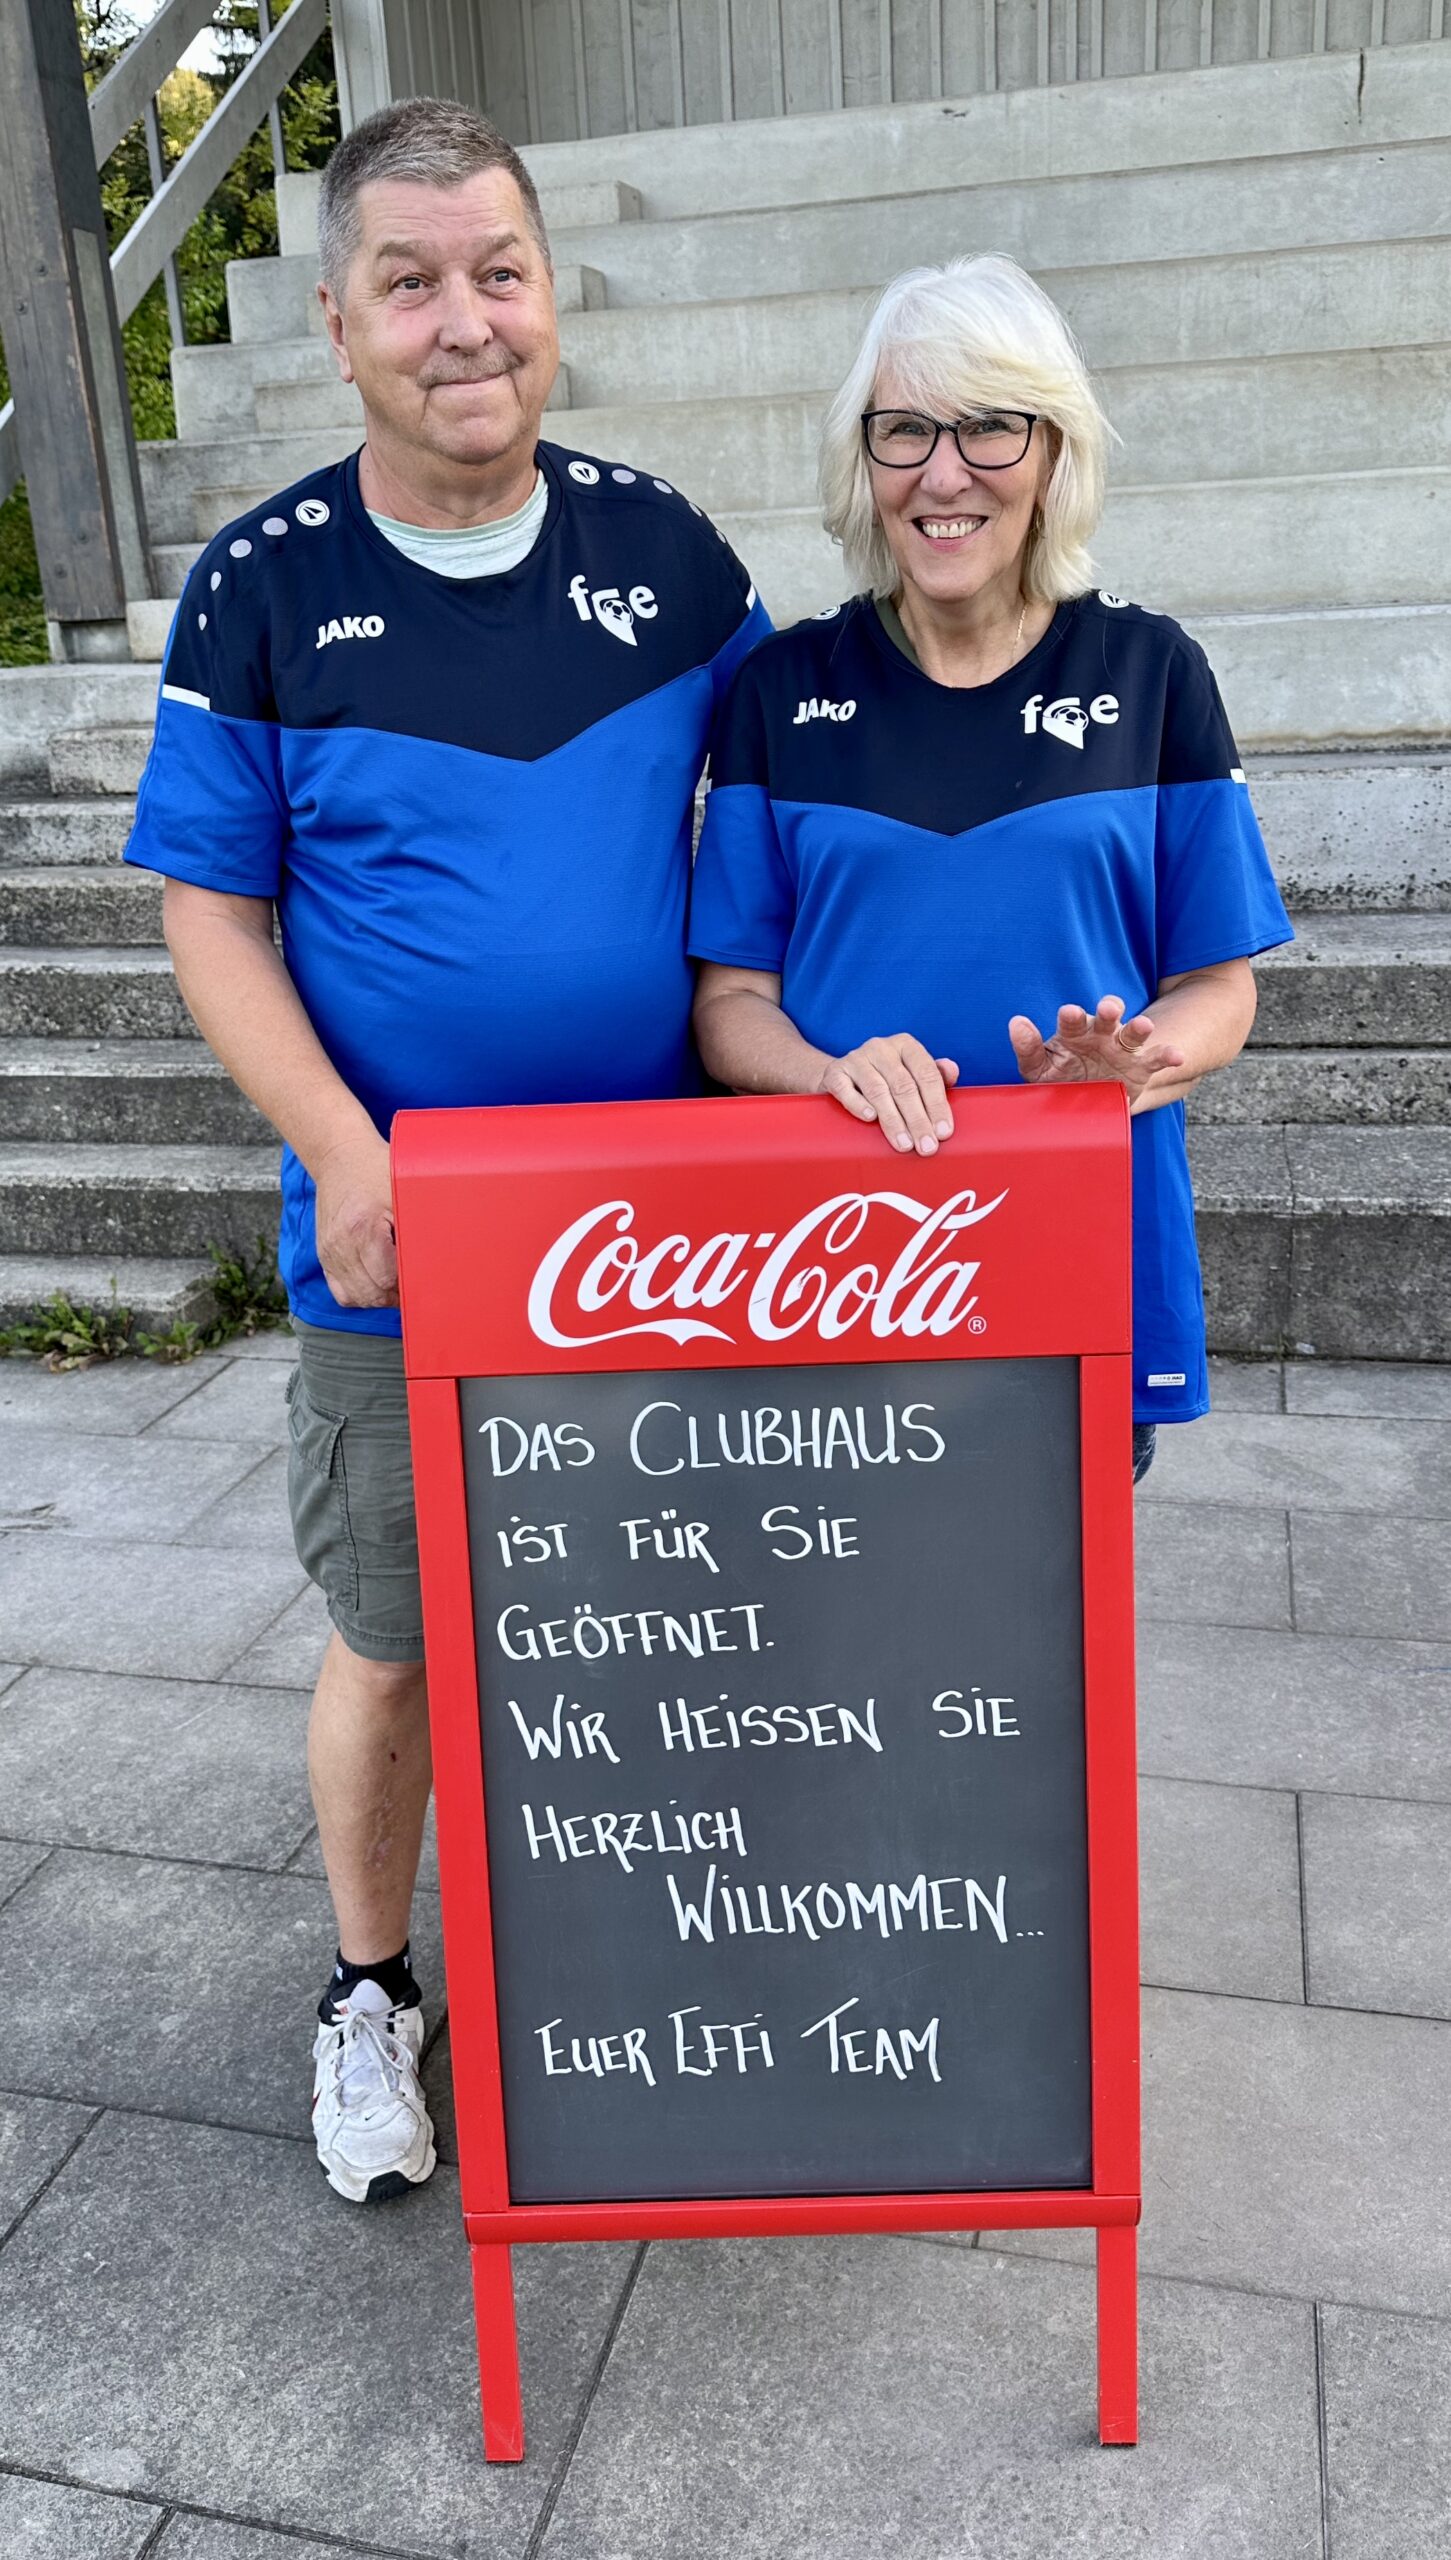 JAKO
fce
JAKO
fce
Coca-Cola®
DAS CLUBHAUS
IST FÜR SIE
GEÖFFNET.
WIR HEISSEN SIE
HERZLICH
WILLKOMMEN...
EUER EFFI TEAM